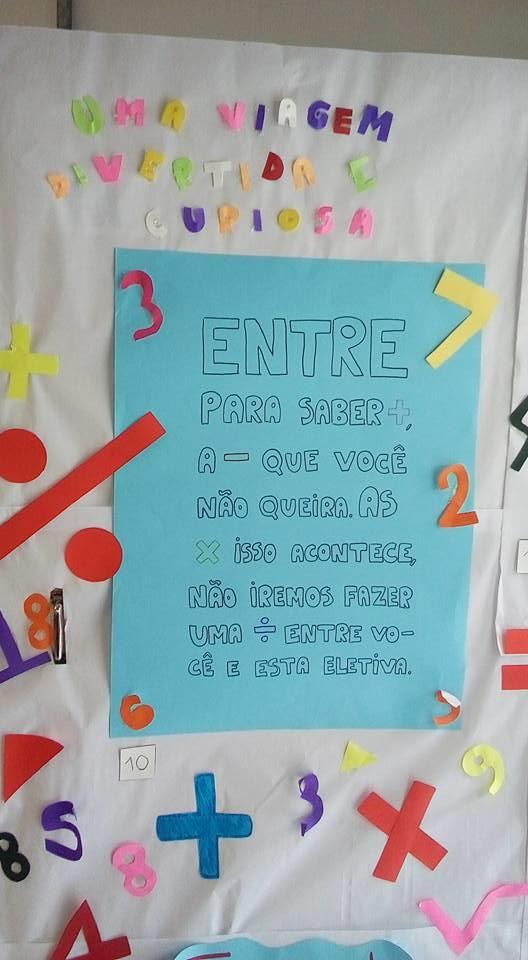 UMA VIAGEM
DIVERTIDA E
CURIOSA
3
7
ENTRE
PARA SABER +,
A - QUE VOCÊ
NÃO QUEIRA. AS
2
× ISSO ACONTECE,
NÃO IREMOS FAZER
8
UMA ÷ ENTRE VO-
CÊ E ESTA ELETIVA.
6
10
+
3
9
5
8
8
×
√